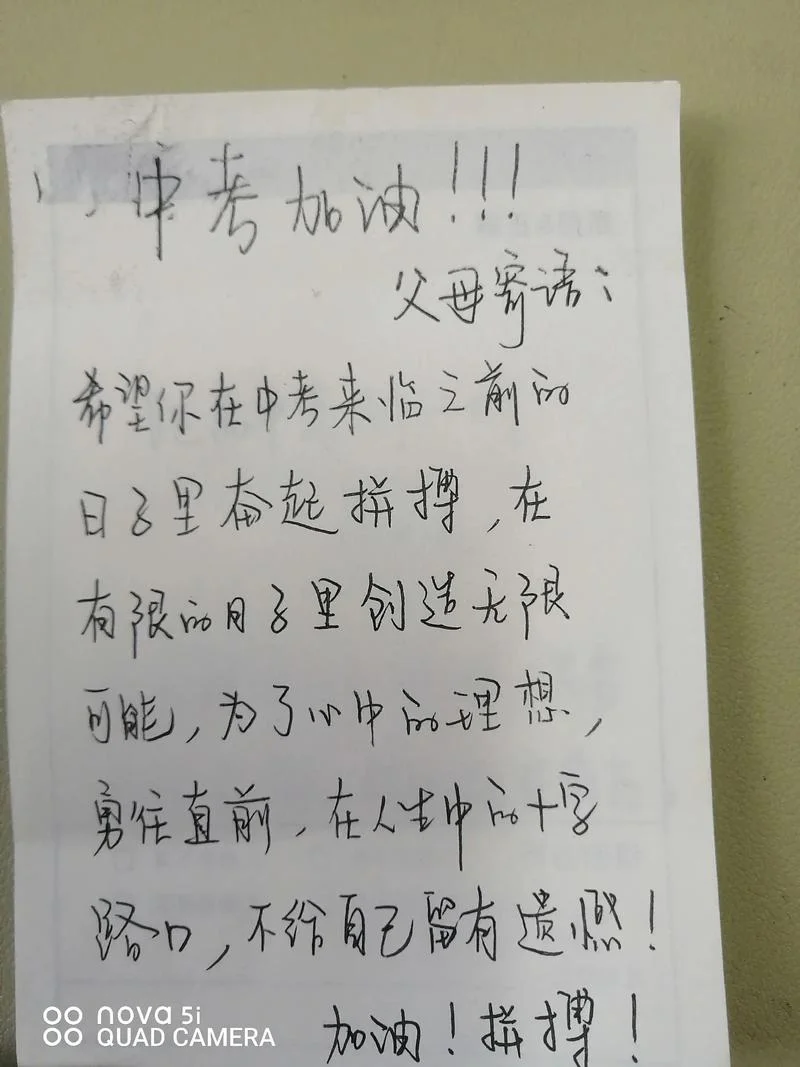 中考加油!!!
父母寄语:
希望你在中考来临之前的
日子里奋起拼搏,在
有限的日子里创造无限
可能,为了心中的理想,
勇往直前,在人生中的十字
路口,不给自己留有遗憾!
加油!拼搏!
nova 5i
QUAD CAMERA